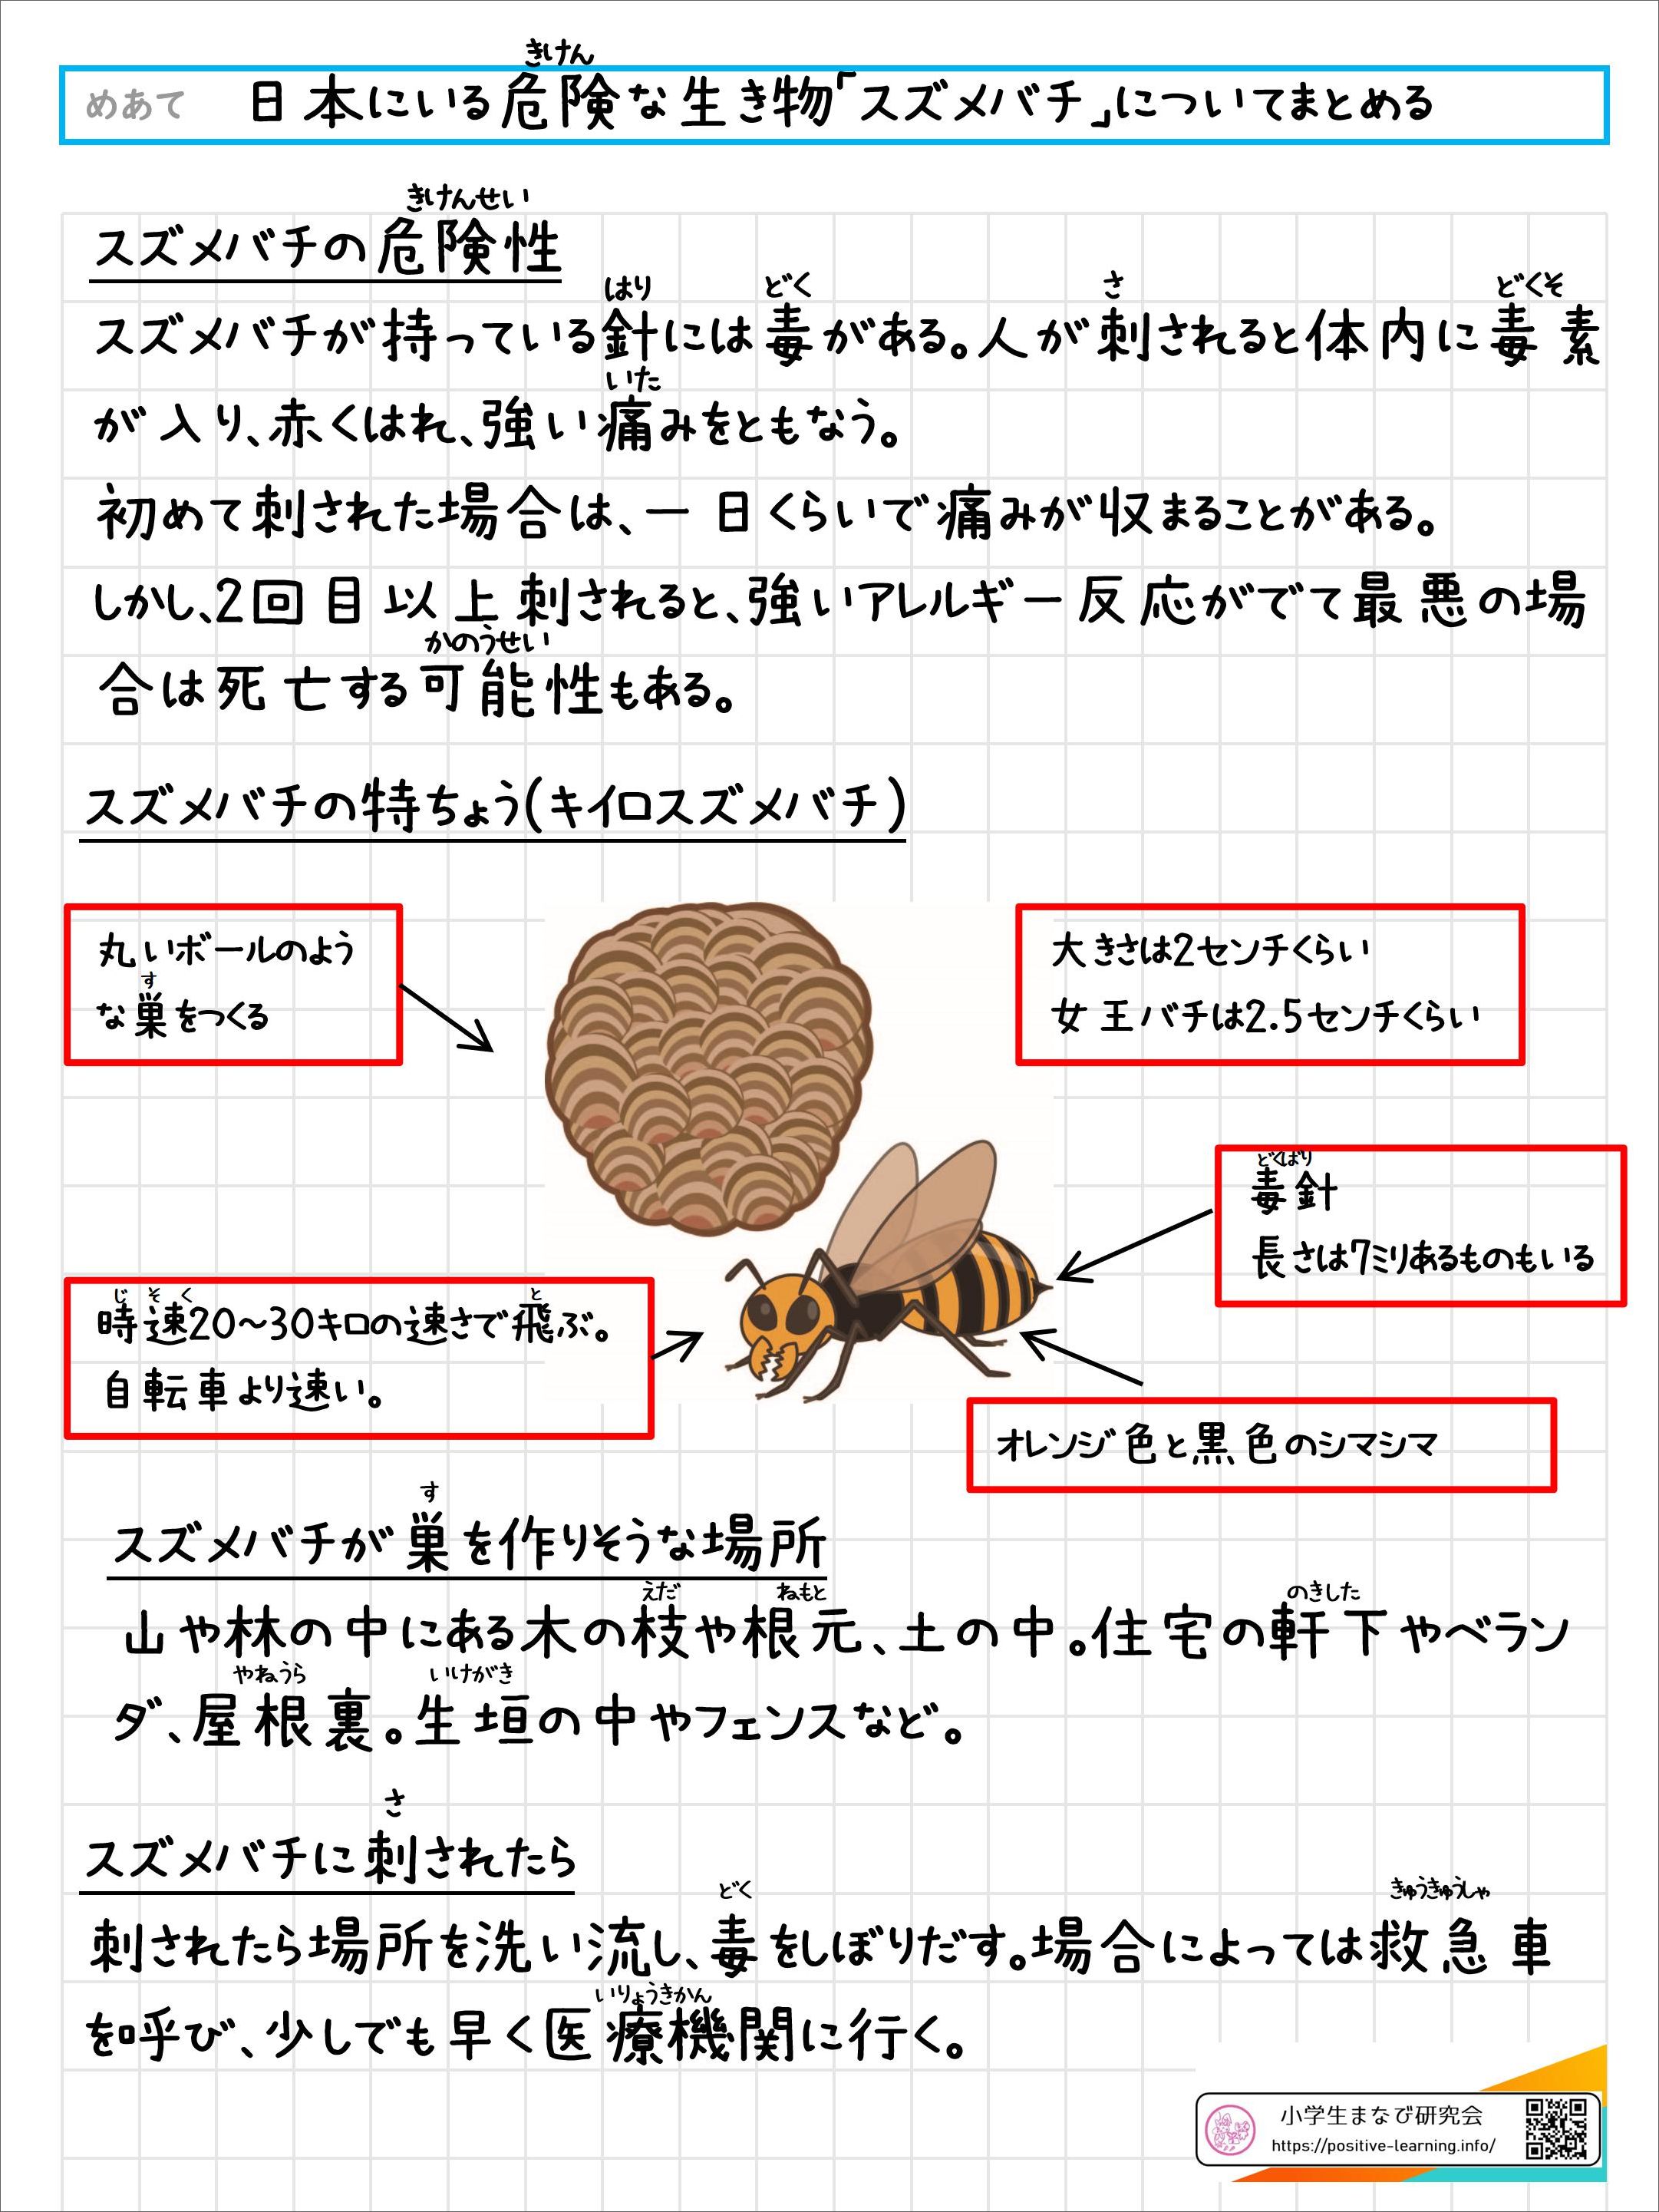 きけん
めあて 日本にいる危険な生き物「スズメバチ」についてまとめる
きけんせい
スズメバチの危険性
はり どく さ どくそ
スズメバチが持っている針には毒がある。人が刺されると体内に毒素
いた
が入り、赤くはれ、強い痛みをともなう。
初めて刺された場合は、一日くらいで痛みが収まることがある。
しかし、2回目以上刺されると、強いアレルギー反応がでて最悪の場
かのうせい
合は死亡する可能性もある。
スズメバチの特ちょう(キイロスズメバチ)
丸いボールのよう
す
な巣をつくる
大きさは2センチくらい
女王バチは2.5センチくらい
どくばり
毒針
長さは7ミリあるものもいる
じ そ く と
時速20～30キロの速さで飛ぶ。
自転車より速い。
オレンジ色と黒色のシマシマ
す
スズメバチが巣を作りそうな場所
えだ ねもと のきした
山や林の中にある木の枝や根元、土の中。住宅の軒下やベラン
やねうら いけがき
ダ、屋根裏。生垣の中やフェンスなど。
さ
スズメバチに刺されたら
どく きゅうきゅうしゃ
刺されたら場所を洗い流し、毒をしぼりだす。場合によっては救急車
いりょうきかん
を呼び、少しでも早く医療機関に行く。
小学生まなび研究会
https://positive-learning.info/